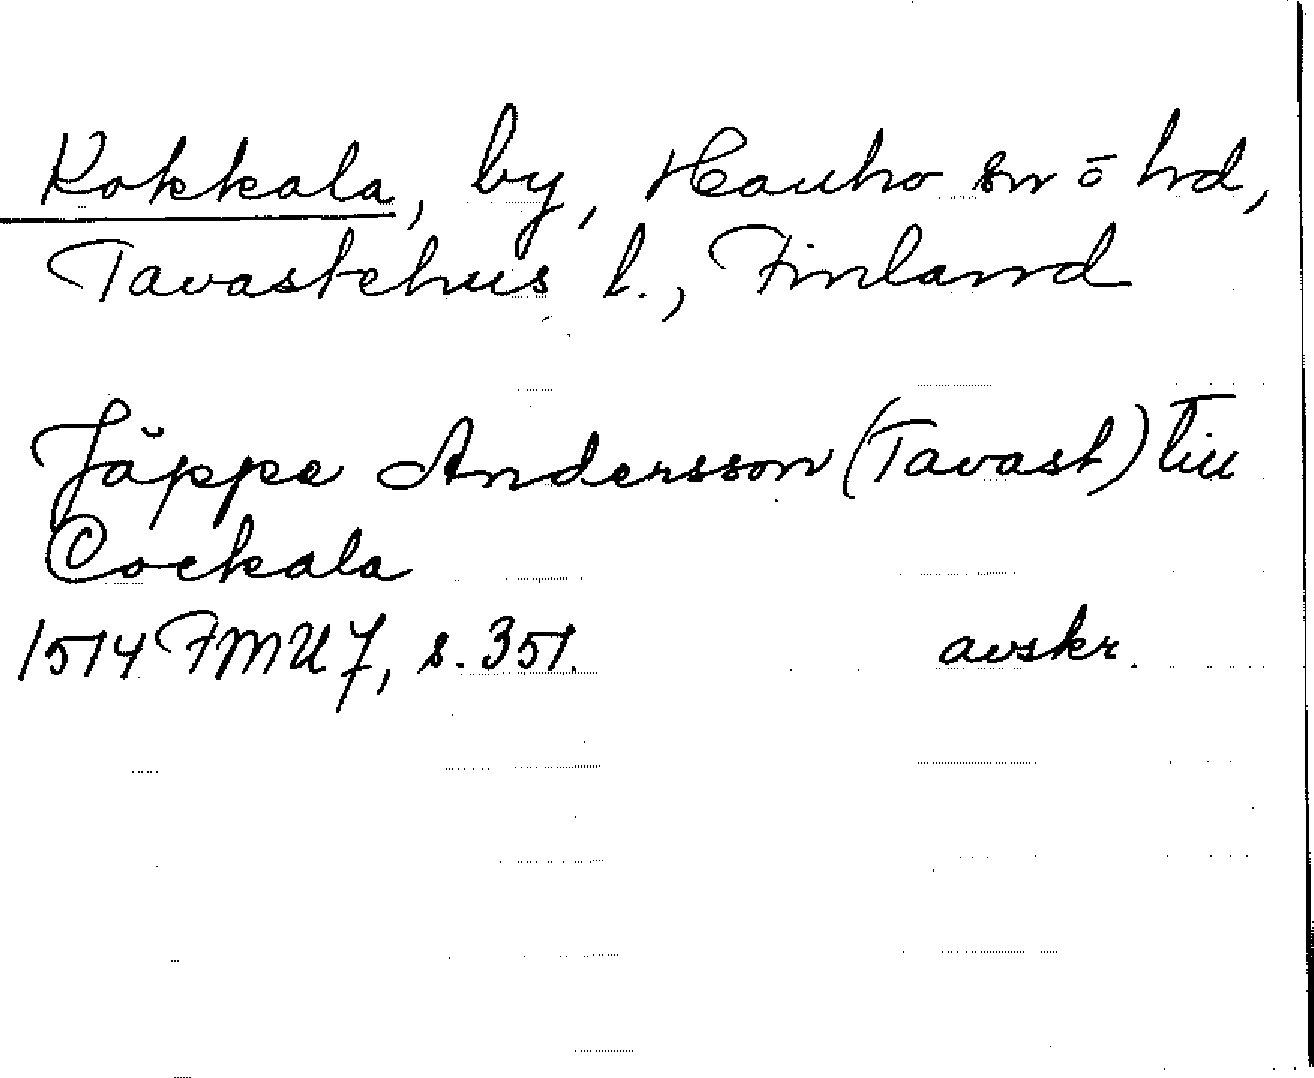 Kokkala, by, Hauho sn o hd,
Tavastehus l., Finland
Jäppe Andersson (Tavast) till
Cockala
1514 FMU 7, s. 351. avskr.